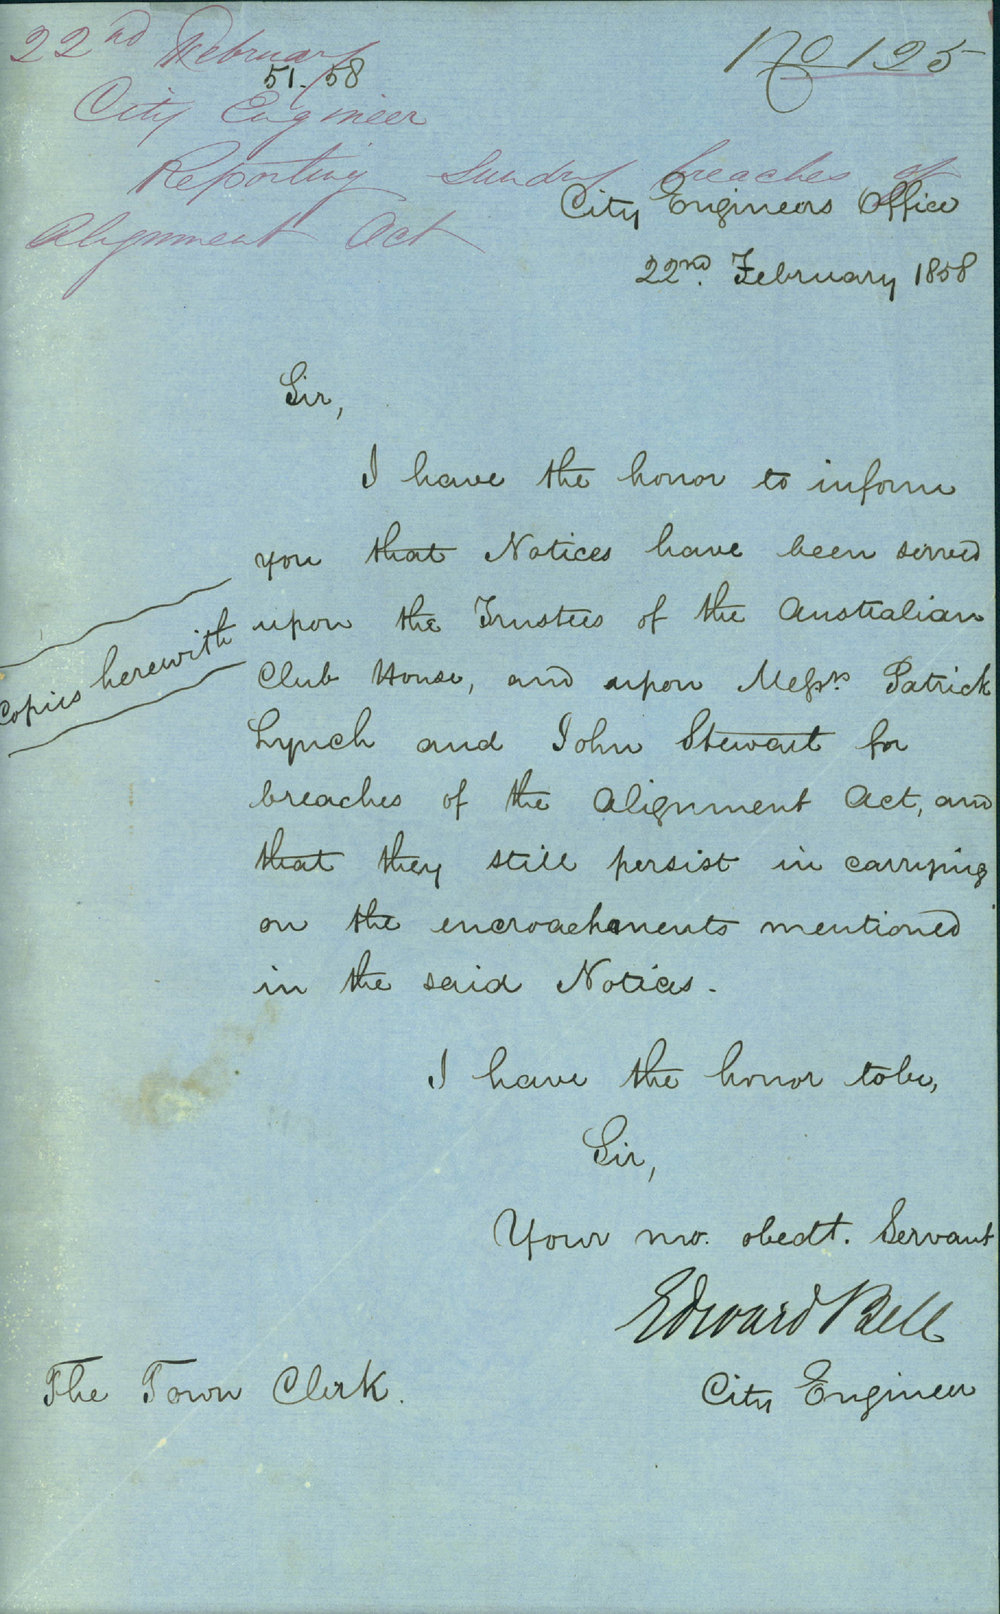 22nd February
51. 58
No 125
City Engineer
Reporting Sundry breaches of
Alignment Act
City Engineers Office
22nd. February 1858
Sir,
I have the honor to inform
you that Notices have been served
upon the Trustees of the Australian
Copies herewith
Club House, and upon Messrs. Patrick
Lynch and John Stewart for
breaches of the Alignment Act, and
that they still persist in carrying
on the encroachments mentioned
in the said Notices.
I have the honor to be,
Sir,
Your mo. obedt. Servant
Edward Bell
City Engineer
The Town Clerk.